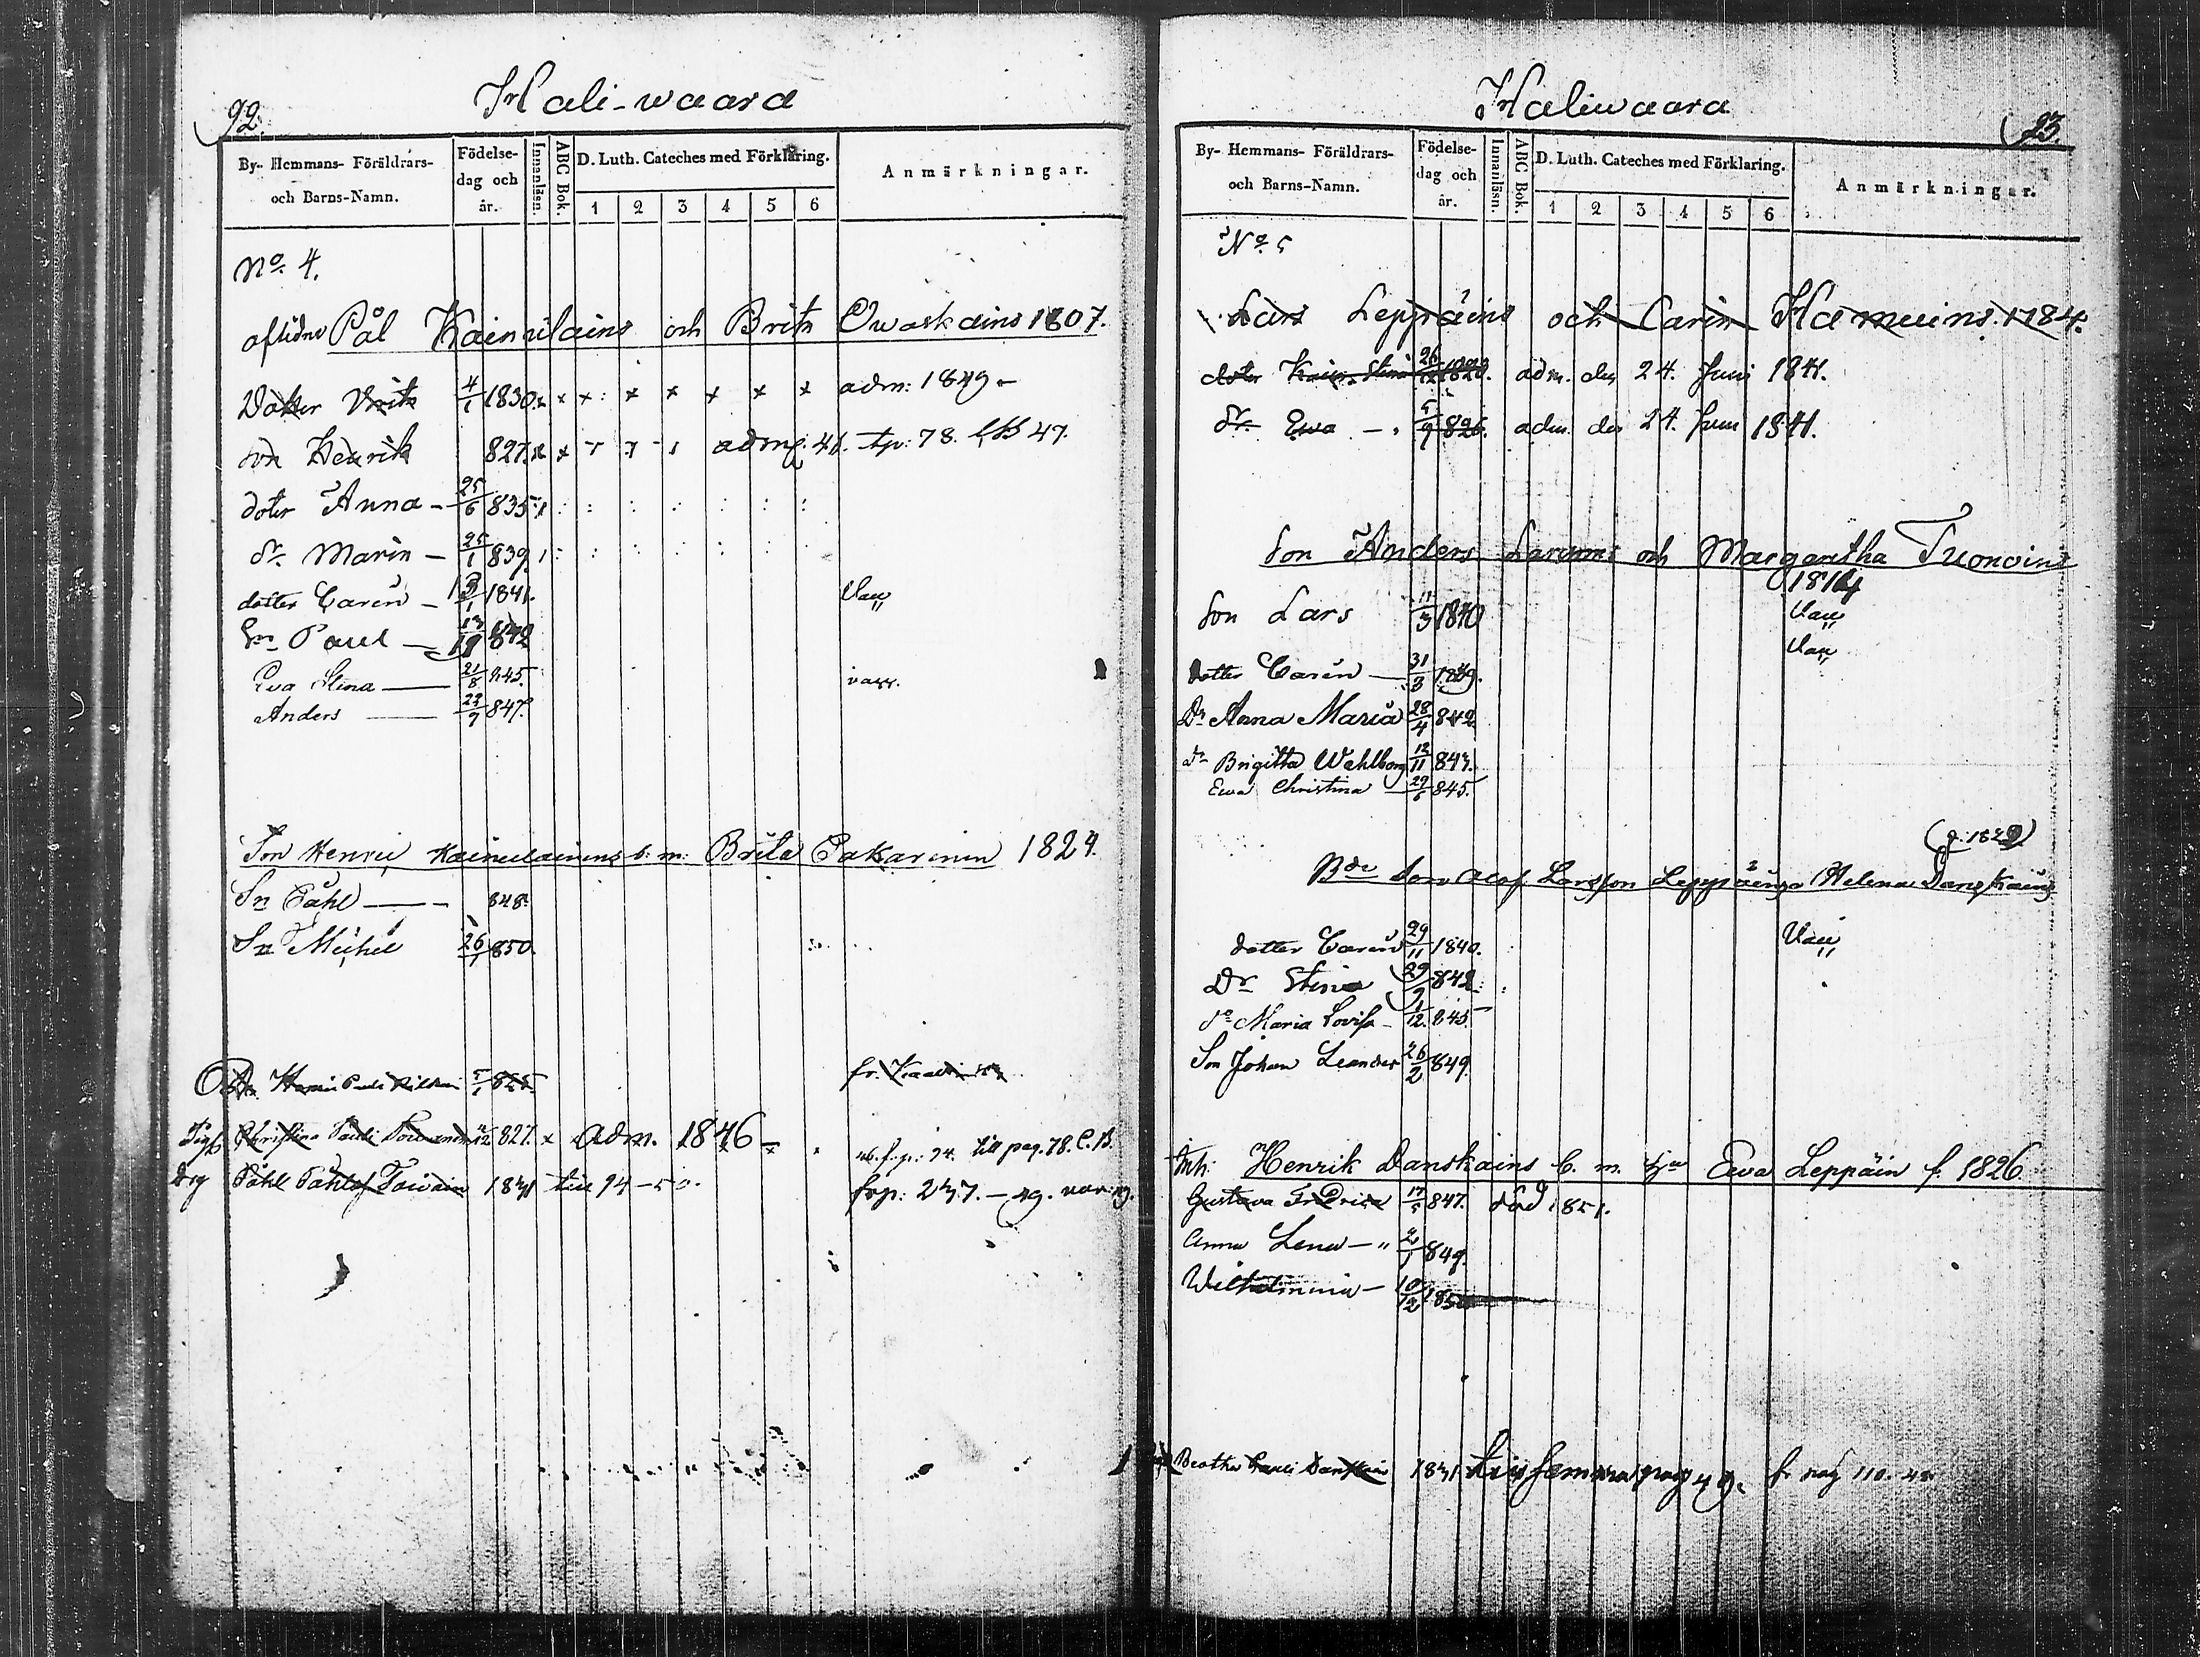 92.
Hali-waara
By- Hemmans- Föräldrars- och Barns-Namn.
Födelse- dag och år.
Innanläsn.
ABC Bok.
D. Luth. Cateches med Förklaring.
1 2 3 4 5 6
Anmärkningar.
No. 4.
aflidne Pål Kainulains och Brita Owaskains 1807.
Dotter Brita 4/1 1830. x x x x x x x x adm: 1849
son Henrik 827. adm: 41. tp: 78. 47.
doter Anna - 25/6 835
dr. Marin - 25/1 839
dotter Carin - 13/1 1841. Vacc
Sn Paul - 842
Eva Stina 21/8 845. vacc.
Anders 23/9 847.
Son Henric Kainulainens b. m. Brita Pakarinen 1829.
Sn Påhl 848.
Sn Michel 26/1 850.
5/1 825
Christina Pauli 827. x adm. 1846 f. p: 94. till pag. 78. C.B.
drg Påhl Påhlsson Toivain 1831 till 94-50. frp: 237.-49.
Haliwaara
93.
By- Hemmans- Föräldrars- och Barns-Namn.
Födelse- dag och år.
Innanläsn.
ABC Bok.
D. Luth. Cateches med Förklaring.
1 2 3 4 5 6
Anmärkningar.
No. 5
Lars Leppäins och Carin Hamuins. 1784.
doter Kaisa Stina 26/12 1820. adm. den 24. Juni 1841.
dr. Ewa - 5/9 826. adm. den 24. Juni 1841.
Son Anders Larsons och Margaretha Tuonoins
1814
Son Lars 11/3 1840 Vacc
dotter Carin 31/3 1839. Vacc
Dr Anna Maria 28/4 842
dr Brigitta Wahlborg 12/11 843.
Ewa Christina 29/6 845.
(f. 1829)
Bde Son Olof Larsson Leppäings Helena Danskains
dotter Carin 29/11 1840. Vacc
Dr Stina 29/9 842.
dr Maria Lovisa - 1/12. 845.
Son Johan Leander 26/2 849.
Inh: Henrik Danskains b. m. hu Ewa Leppäin f. 1826
Gustava Fredrica 17/5 847. död 1851.
Anna Lena - " 2/1 849.
Wilhelmina - 10/12 185
Beatha Pauli Danskain 1831 pag 49. fr pag 110.